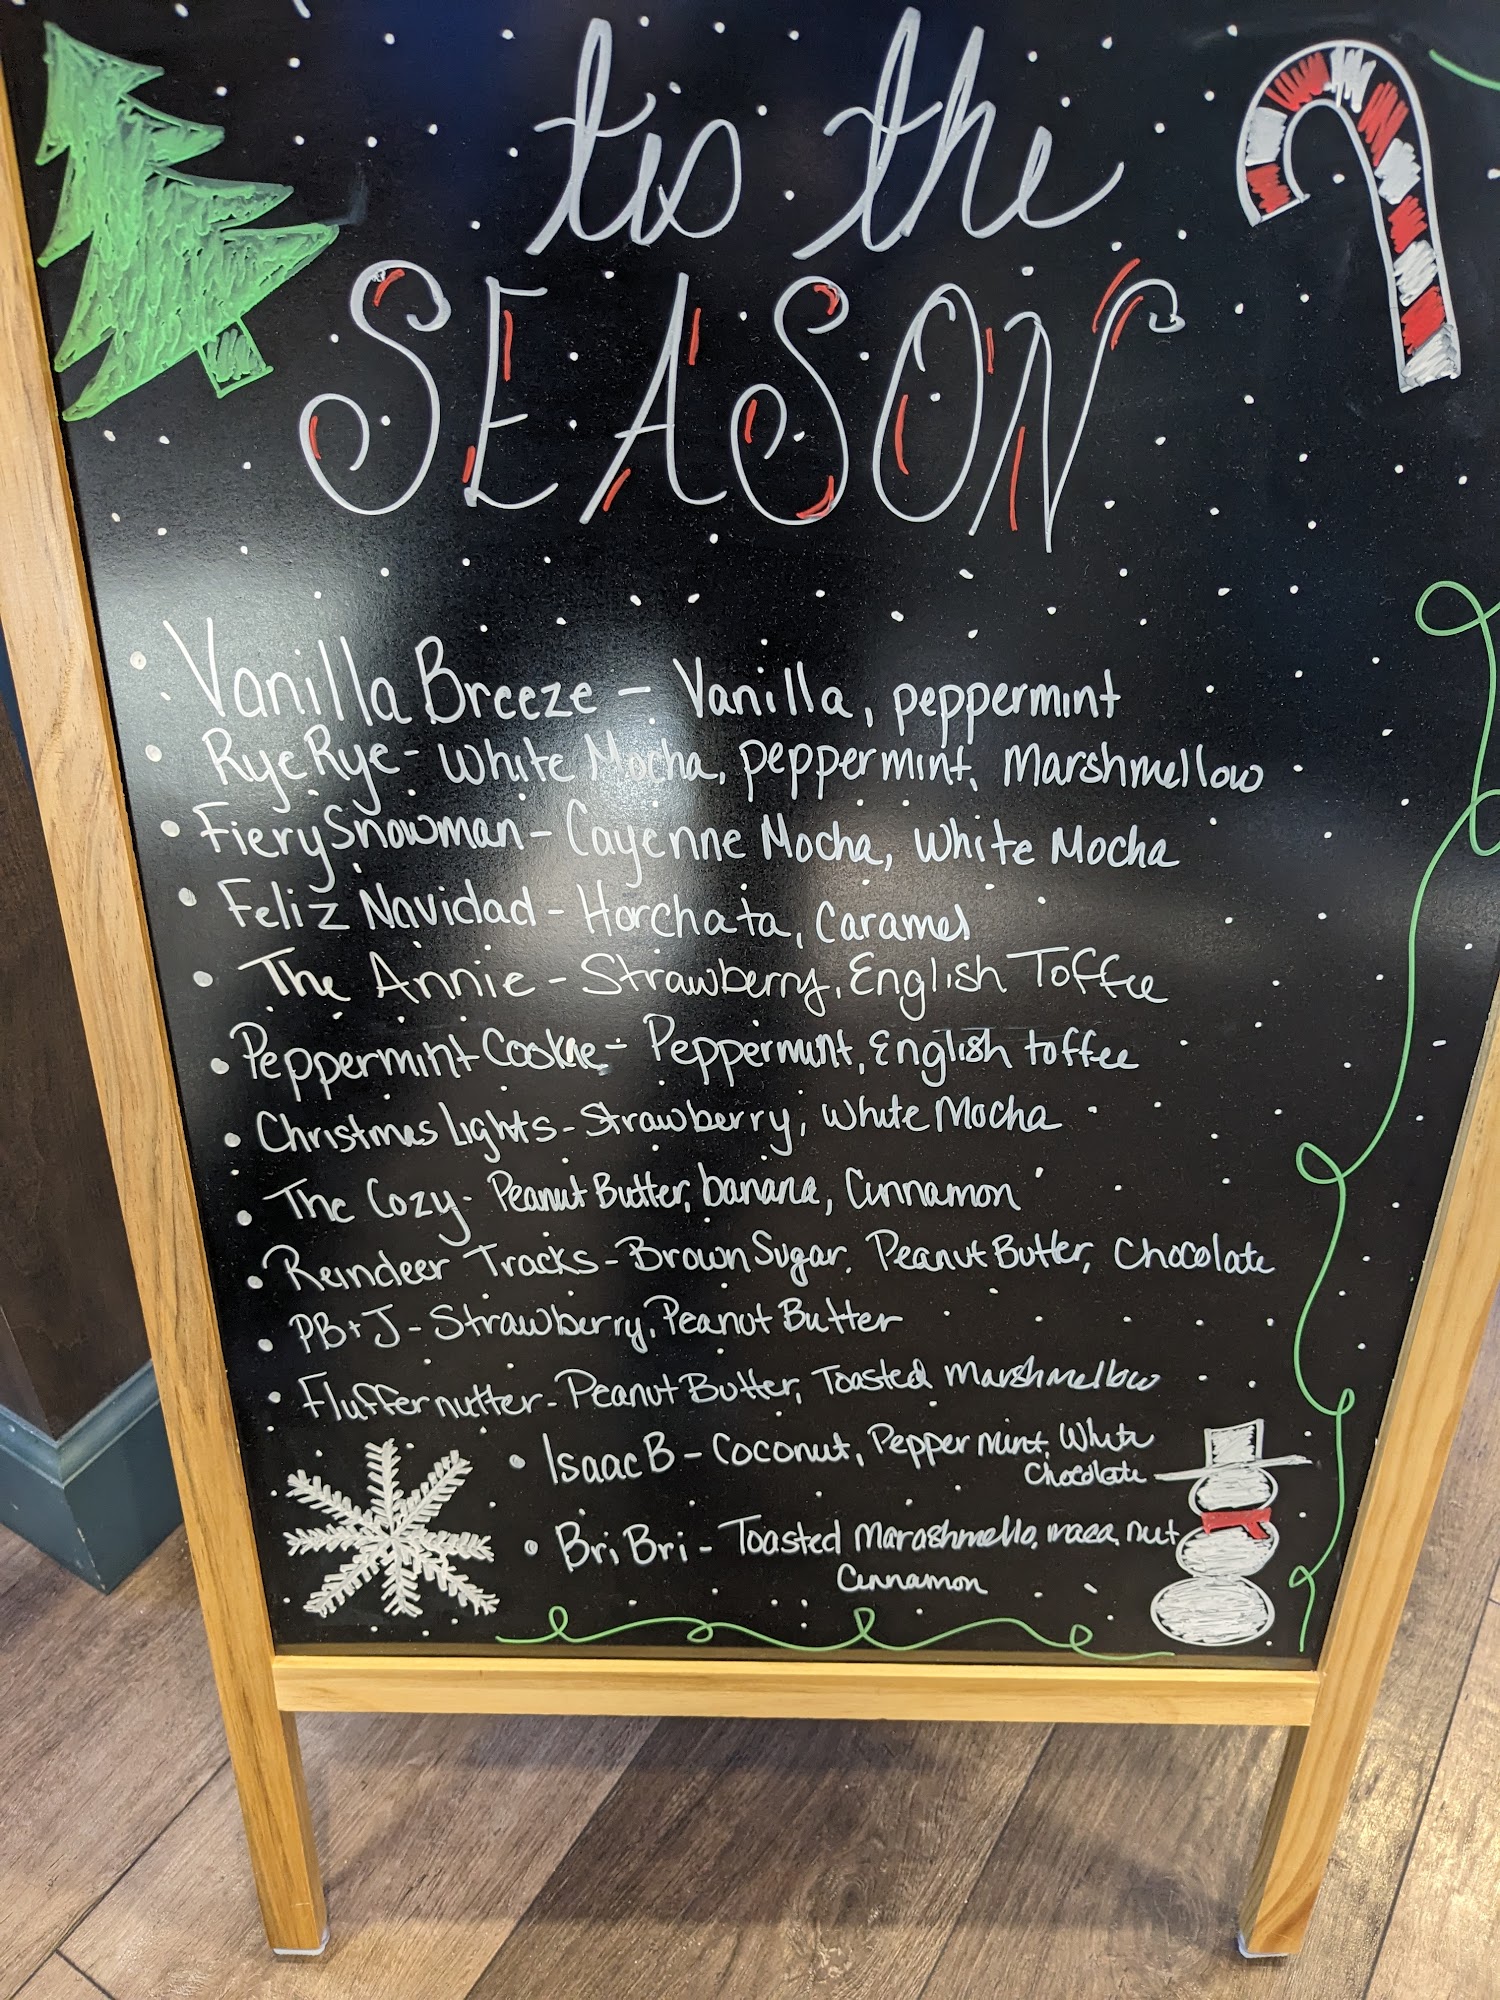 tis the
SEASON
• Vanilla Breeze - Vanilla, peppermint
• RyeRye - White Mocha, peppermint, Marshmellow
• Fiery Snowman - Cayenne Mocha, White Mocha
• Feliz Navidad - Horchata, Caramel
• The Annie - Strawberry, English Toffee
• Peppermint Cookie - Peppermint, English toffee
• Christmas Lights - Strawberry, White Mocha
• The Cozy - Peanut Butter, banana, Cinnamon
• Reindeer Tracks - Brown Sugar, Peanut Butter, Chocolate
• PB+J - Strawberry, Peanut Butter
• Fluffernutter - Peanut Butter, Toasted Marshmellow
• Isaac B - Coconut, Peppermint, White
Chocolate
• Bri Bri - Toasted nut
Cinnamon